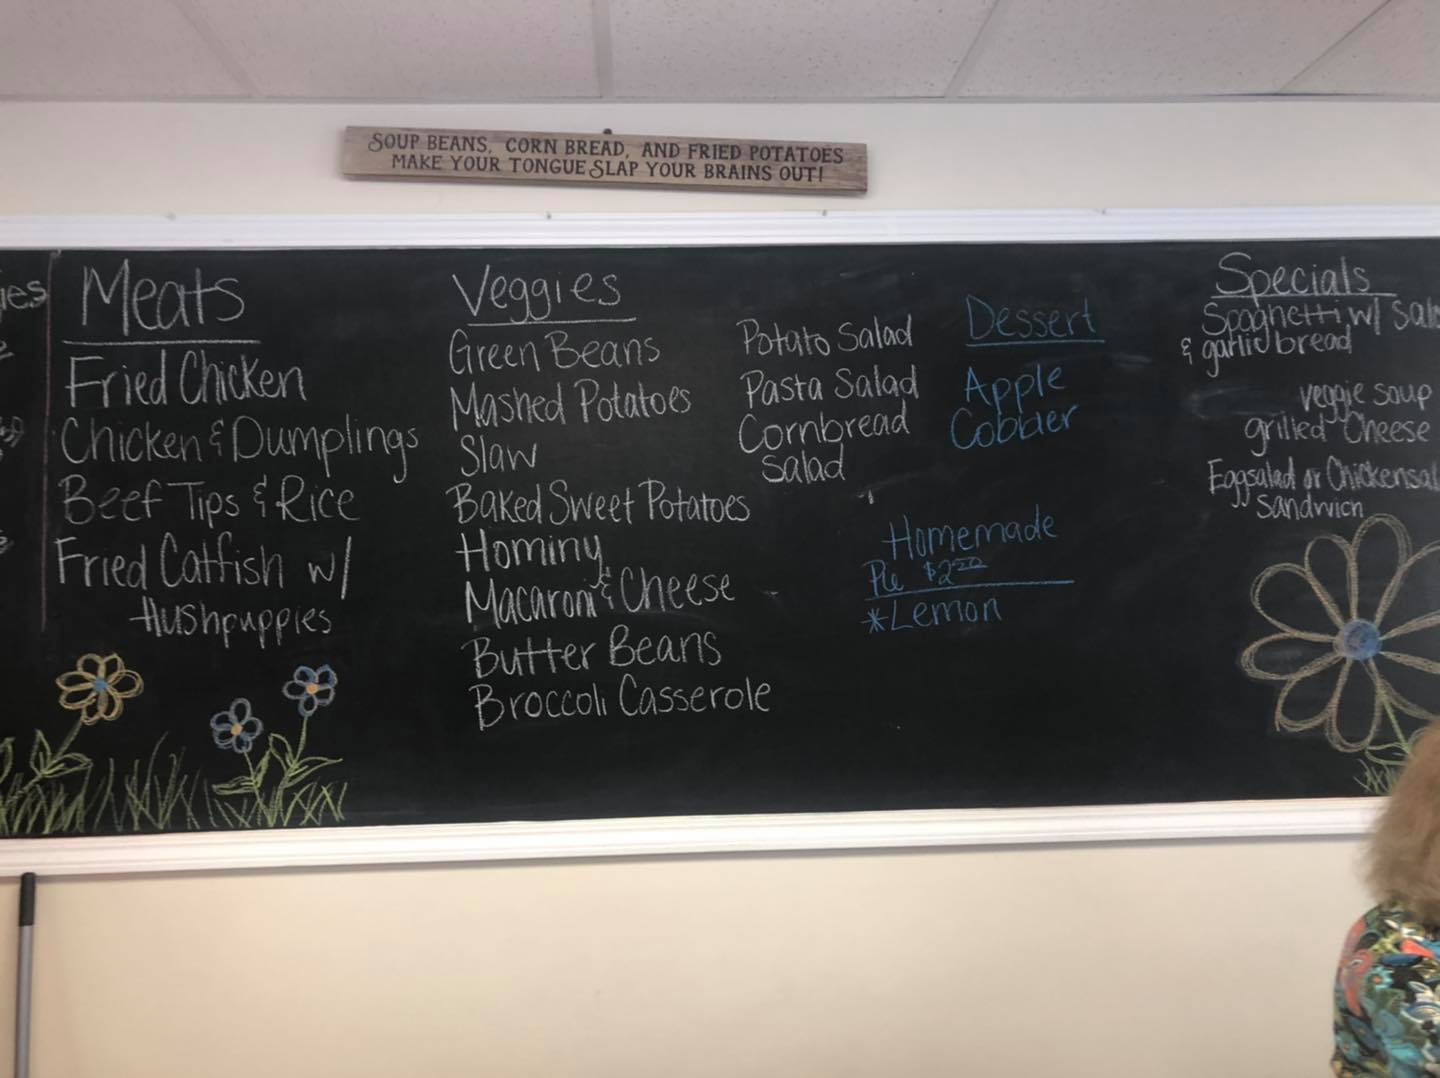 SOUP BEANS, CORN BREAD, AND FRIED POTATOES
MAKE YOUR TONGUE SLAP YOUR BRAINS OUT!
Meats
Fried Chicken
Chicken & Dumplings
Beef Tips & Rice
Fried Catfish w/
Hushpuppies
Veggies
Green Beans
Mashed Potatoes
Slaw
Baked Sweet Potatoes
Hominy
Macaroni & Cheese
Butter Beans
Broccoli Casserole
Potato Salad
Pasta Salad
Cornbread
Salad
Dessert
Apple
Cobbler
Homemade
Pie
*Lemon
Specials
Spaghetti w/
& garlic bread
veggie soup
grilled Cheese
Eggsalad or
Sandwich